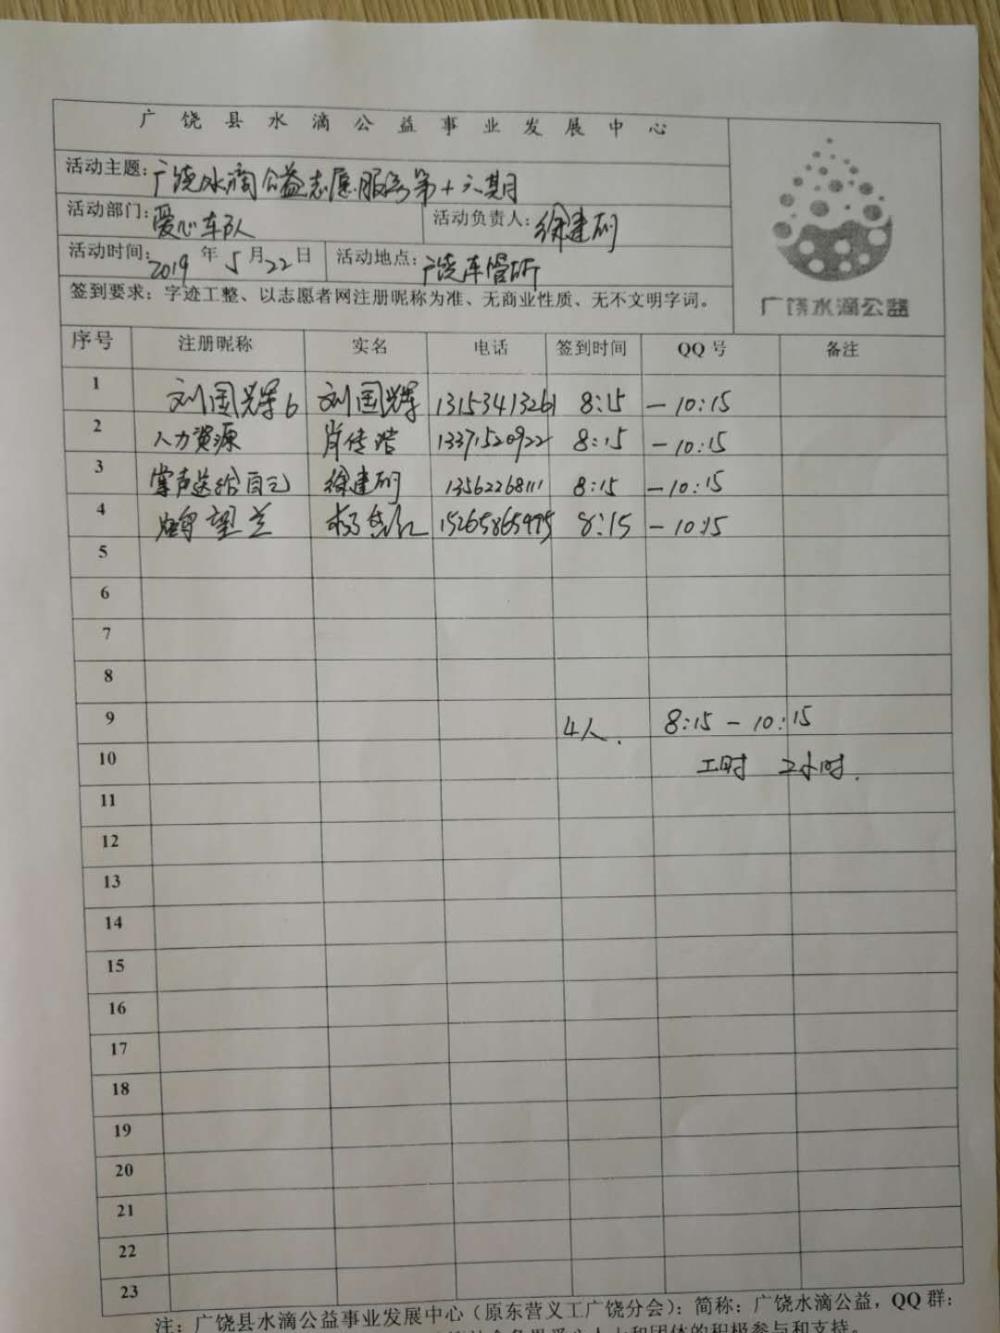 广饶县水滴公益事业发展中心
活动主题：广饶水滴公益志愿服务第十六期
活动部门：爱心车队 活动负责人：徐建
活动时间：2019年5月22日 活动地点：广饶车管所
签到要求：字迹工整、以志愿者网注册昵称为准、无商业性质、无不文明字词。
广饶水滴公益
序号 注册昵称 实名 电话 签到时间 QQ号 备注
1 刘国辉6 刘国辉 13153413261 8:15 -10:15
2 人力资源 肖传 13371520922 8:15 -10:15
3 掌声送给自己 徐建 13562268111 8:15 -10:15
4 望兰 杨 15265865995 8:15 -10:15
5
6
7
8
9 4人. 8:15-10:15
10 工时 2小时.
11
12
13
14
15
16
17
18
19
20
21
22
23
注：广饶县水滴公益事业发展中心（原东营义工广饶分会）；简称：广饶水滴公益，QQ群：
积极参与和支持。